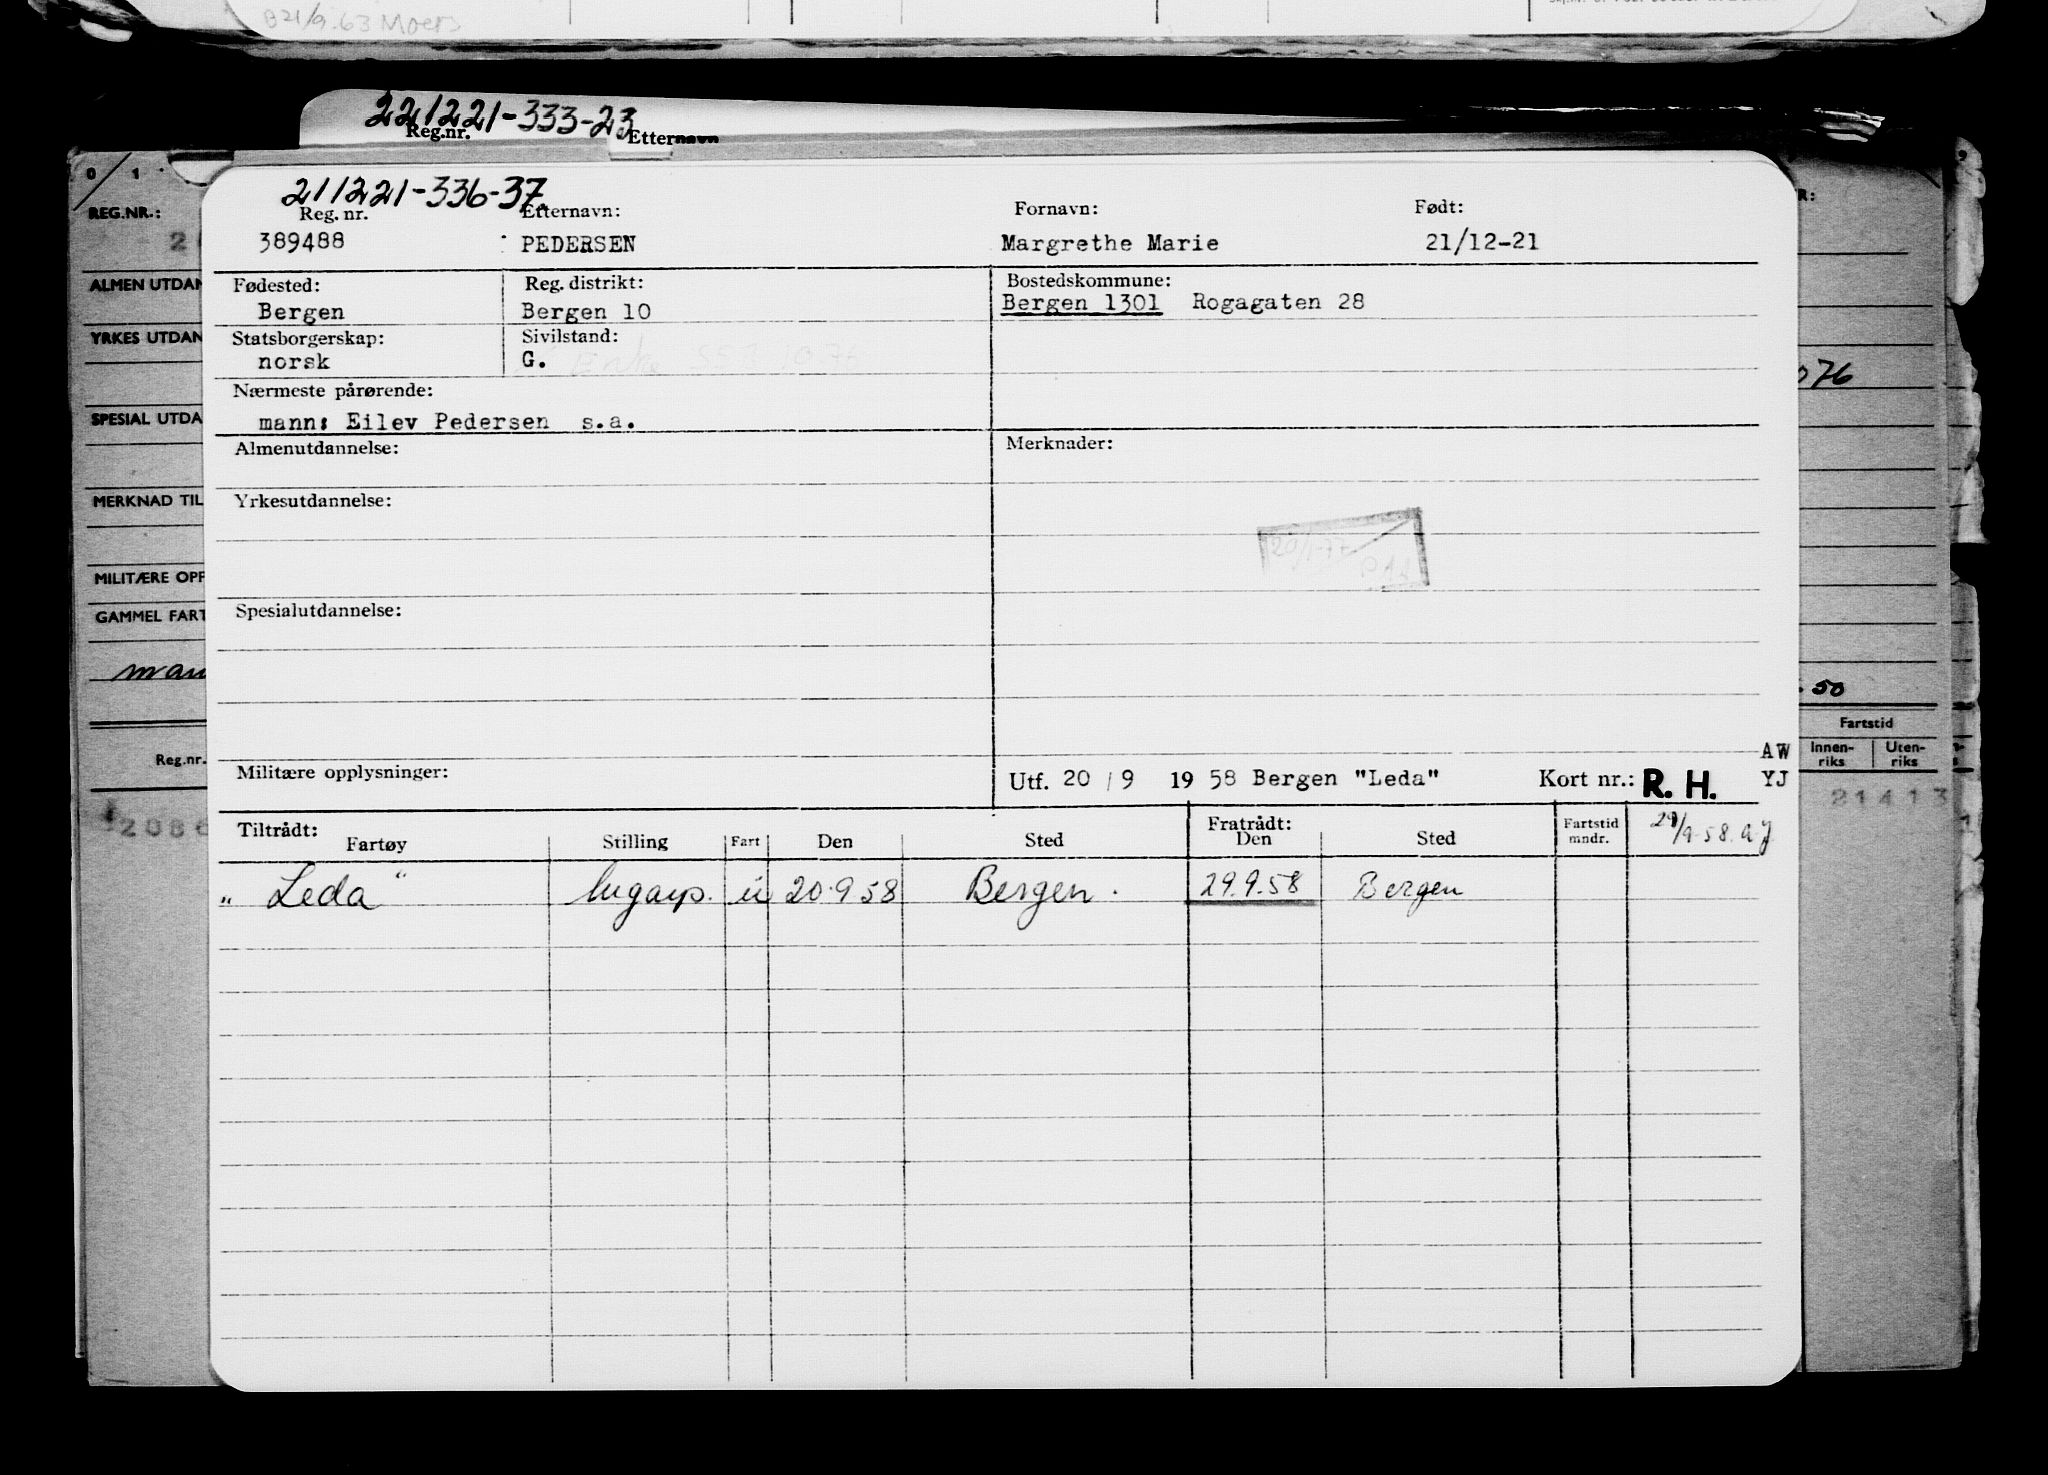 B21/9.63 Moers
221221-333-23
Reg.nr. Etternavn
0 1
REG.NR.:
ALMEN UTDAN
YRKES UTDAN
SPESIAL UTDA
MERKNAD TIL
MILITÆRE OPP
GAMMEL FART
Reg.nr.
211221-336-37
Reg. nr. Etternavn: Fornavn: Født:
389488 PEDERSEN Margrethe Marie 21/12-21
Fødested: Reg. distrikt: Bostedskommune:
Bergen Bergen 10 Bergen 1301 Rogagaten 28
Statsborgerskap: Sivilstand:
norsk G.
Nærmeste pårørende:
mann: Eilev Pedersen s.a.
Almenutdannelse: Merknader:
Yrkesutdannelse:
20/1-77
Spesialutdannelse:
Militære opplysninger: Utf. 20 / 9 19 58 Bergen "Leda" Kort nr.: R. H.
AW
YJ
Tiltrådt: Fratrådt: Fartstid 29/9-58. a.J
Fartøy Stilling Fart Den Sted Den Sted mndr.
"Leda" lugarp. u 20.9 58 Bergen. 29.9.58 Bergen
R:
076
. 50
Fartstid
Innen- Uten-
riks riks
21413